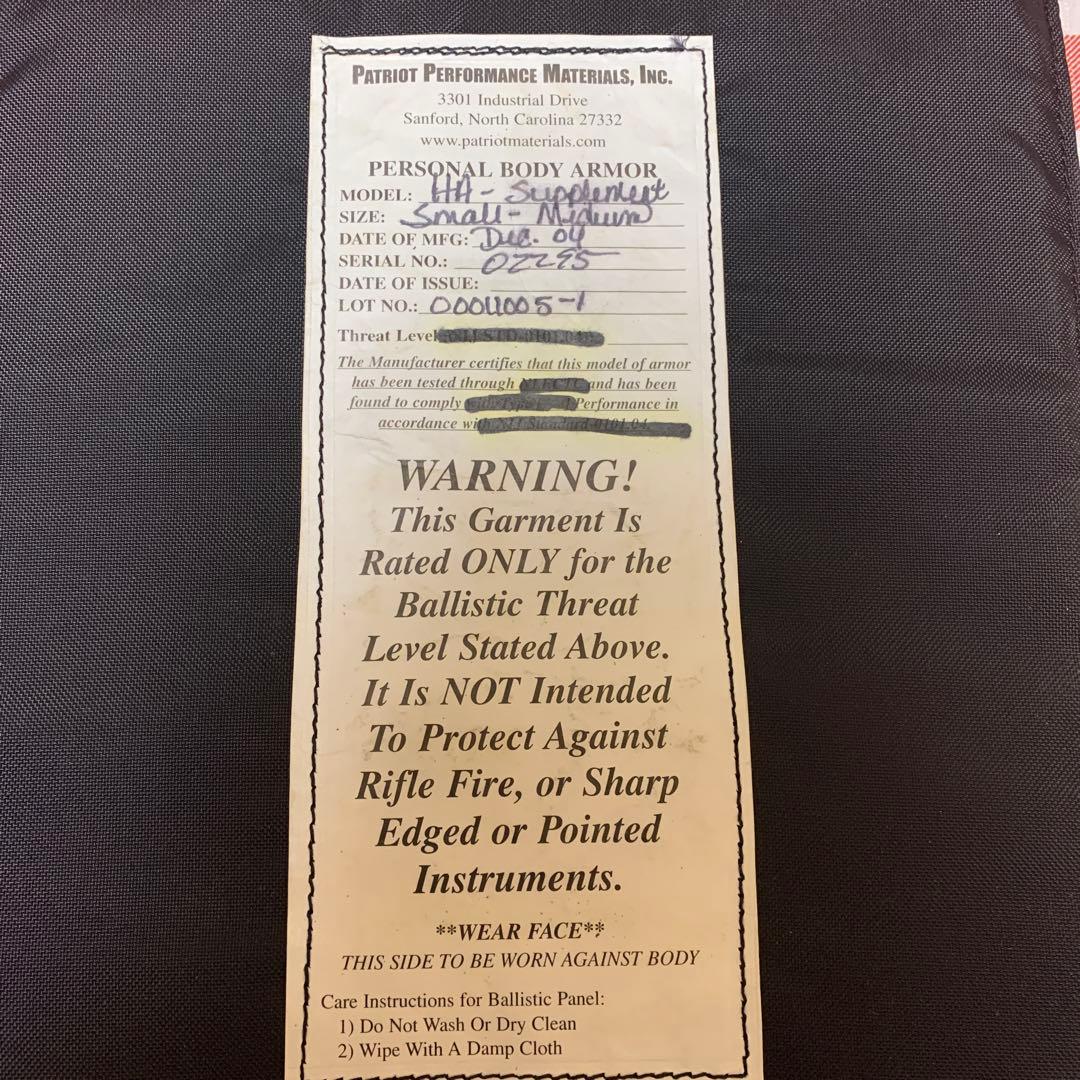 PATRIOT PERFORMANCE MATERIALS, INC.
3301 Industrial Drive
Sanford, North Carolina 27332
www.patriotmaterials.com
PERSONAL BODY ARMOR
MODEL: HA - Supplement
SIZE: Small - Medium
DATE OF MFG: Dec. 04
SERIAL NO.: 02295
DATE OF ISSUE:
LOT NO.: 00011005-1
Threat Level
The Manufacturer certifies that this model of armor
has been tested through and has been
found to comply Performance in
accordance with
WARNING!
This Garment Is
Rated ONLY for the
Ballistic Threat
Level Stated Above.
It Is NOT Intended
To Protect Against
Rifle Fire, or Sharp
Edged or Pointed
Instruments.
**WEAR FACE**
THIS SIDE TO BE WORN AGAINST BODY
Care Instructions for Ballistic Panel:
1) Do Not Wash Or Dry Clean
2) Wipe With A Damp Cloth